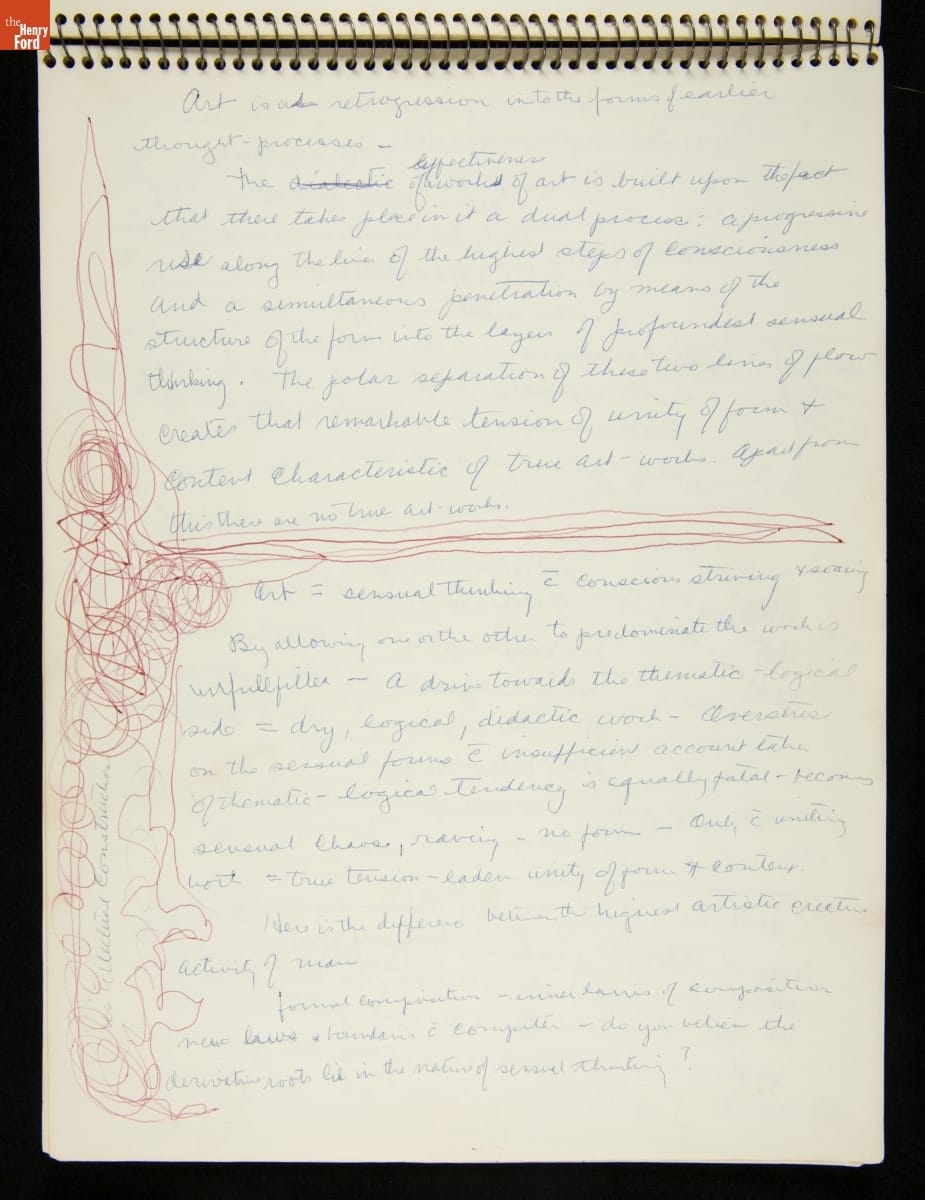 the
Henry
Ford
Art is a retrogression into the forms of earlier
thought-processes –
The dialectic effectiveness of a work of art is built upon the fact
that there takes place in it a dual process: a progressive
rise along the lines of the highest steps of consciousness
and a simultaneous penetration by means of the
structure of the form into the layers of profoundest sensual
thinking. The polar separation of these two lines of flow
creates that remarkable tension of unity of form +
content characteristic of true art-works. Apart from
this there are no true art-works.
Art = sensual thinking c̄ conscious striving + soaring
By allowing one or the other to predominate the work is
unfullfilled – A drive towards the thematic-logical
side = dry, logical, didactic work – Overstress
on the sensual forms c̄ insufficient account taken
of thematic-logical tendency is equally fatal – becomes
sensual chaos, raving – no form – Only c̄ uniting
= true tension-laden unity of form + content.
Here is the difference between the highest artistic creative
activity of man
formal composition – inner laws of composition
new laws + boundaries c̄ computer – do you believe the
derivative roots lie in the nature of sensual thinking?
Intellectual Construction